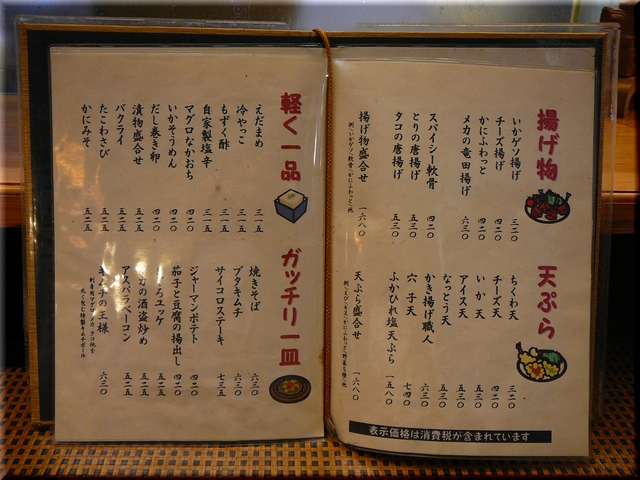 揚げ物
いかゲソ揚げ 三二〇
チーズ揚げ 四二〇
かにふわっと 四二〇
メカの竜田揚げ 六三〇
スパイシー軟骨 四二〇
とりの唐揚げ 五三〇
タコの唐揚げ 五三〇
揚げ物盛合せ 一六八〇
天ぷら
ちくわ天 三二〇
チーズ天 四二〇
いか天 五三〇
アイス天 五三〇
なっとう天 五三〇
かき揚げ職人 六三〇
穴子天 七四〇
ふかひれ塩天ぷら 一五八〇
天ぷら盛合せ 一六八〇
表示価格は消費税が含まれています
軽く一品
えだまめ 三一五
冷やっこ 三一五
もずく酢 三一五
自家製塩辛 三一五
マグロなかおち 四二〇
いかそうめん 四二〇
だし巻き卵 四二〇
漬物盛合せ 五二五
バクライ 五二五
たこわさび 五二五
かにみそ 五二五
ガッチリ一皿
焼きそば 六三〇
ブタキムチ 六三〇
サイコロステーキ 七三五
ジャーマンポテト 四二〇
茄子と豆腐の揚出し 四二〇
ろユッケ 五二五
の酒盗炒め 五二五
アスパラベーコン 五二五
キムチの王様 六三〇